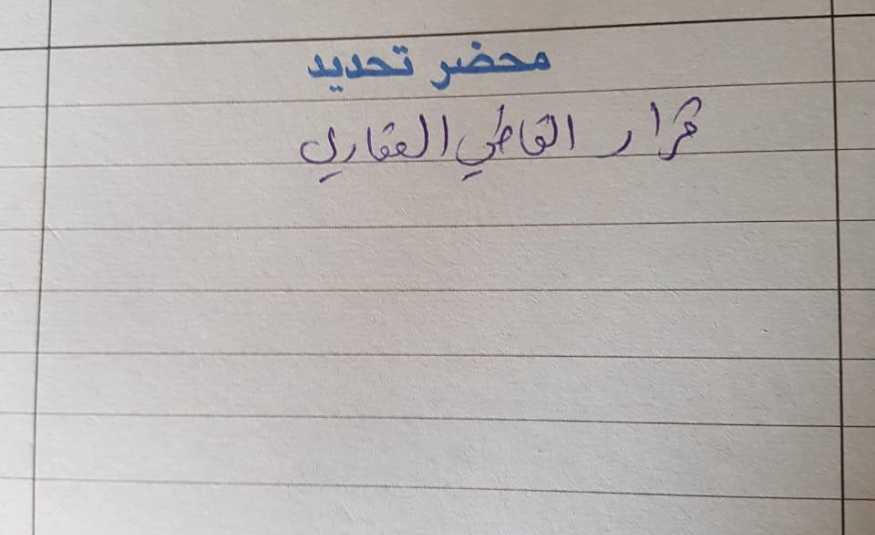 محضر تحديد
قرار القاضي العقاري